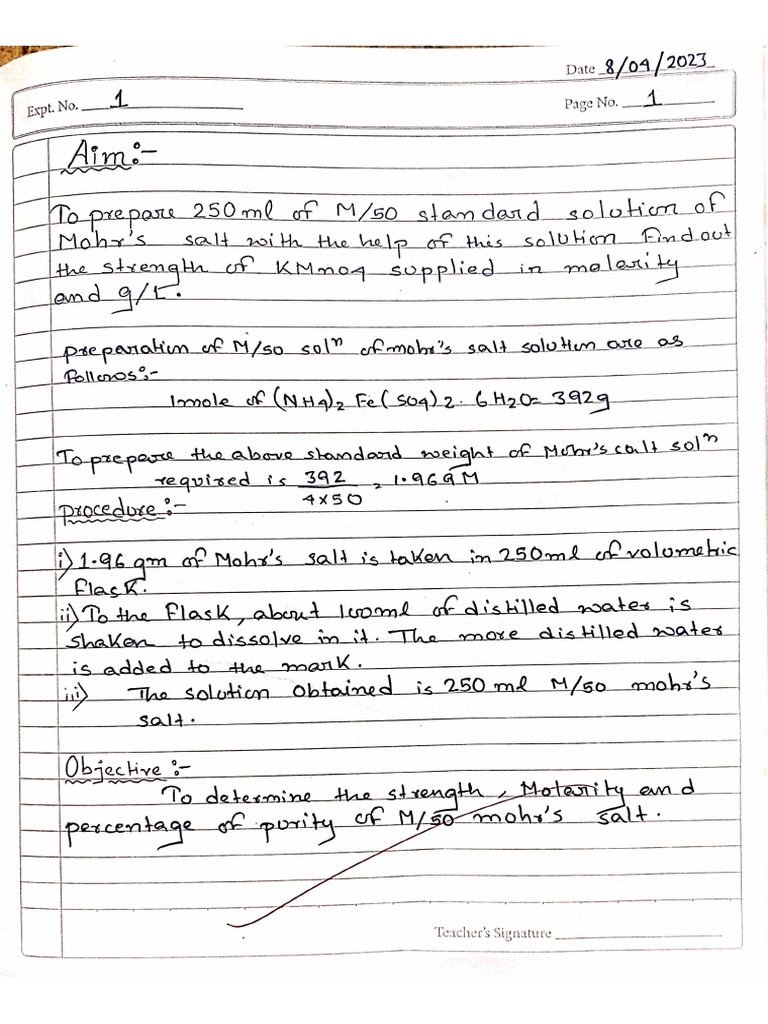 Date 8/04/2023
Expt. No. 1 Page No. 1
Aim:-
To prepare 250ml of M/50 standard solution of
Mohr's salt with the help of this solution find out
the strength of KMnO4 supplied in molarity
and g/L.
preparation of M/50 solⁿ of mohr's salt solution are as
follows:-
1mole of (NH4)2 Fe(SO4)2. 6H2O= 392g
To prepare the above standard weight of Mohr's salt solⁿ
required is 392/4x50 = 1.96gM
procedure:-
i) 1.96 gm of Mohr's salt is taken in 250ml of volumetric
flask.
ii) To the flask, about 100ml of distilled water is
shaken to dissolve in it. The more distilled water
is added to the mark.
iii) The solution obtained is 250 ml M/50 mohr's
salt.
Objective:-
To determine the strength, Molarity and
percentage of purity of M/50 mohr's salt.
Teacher's Signature